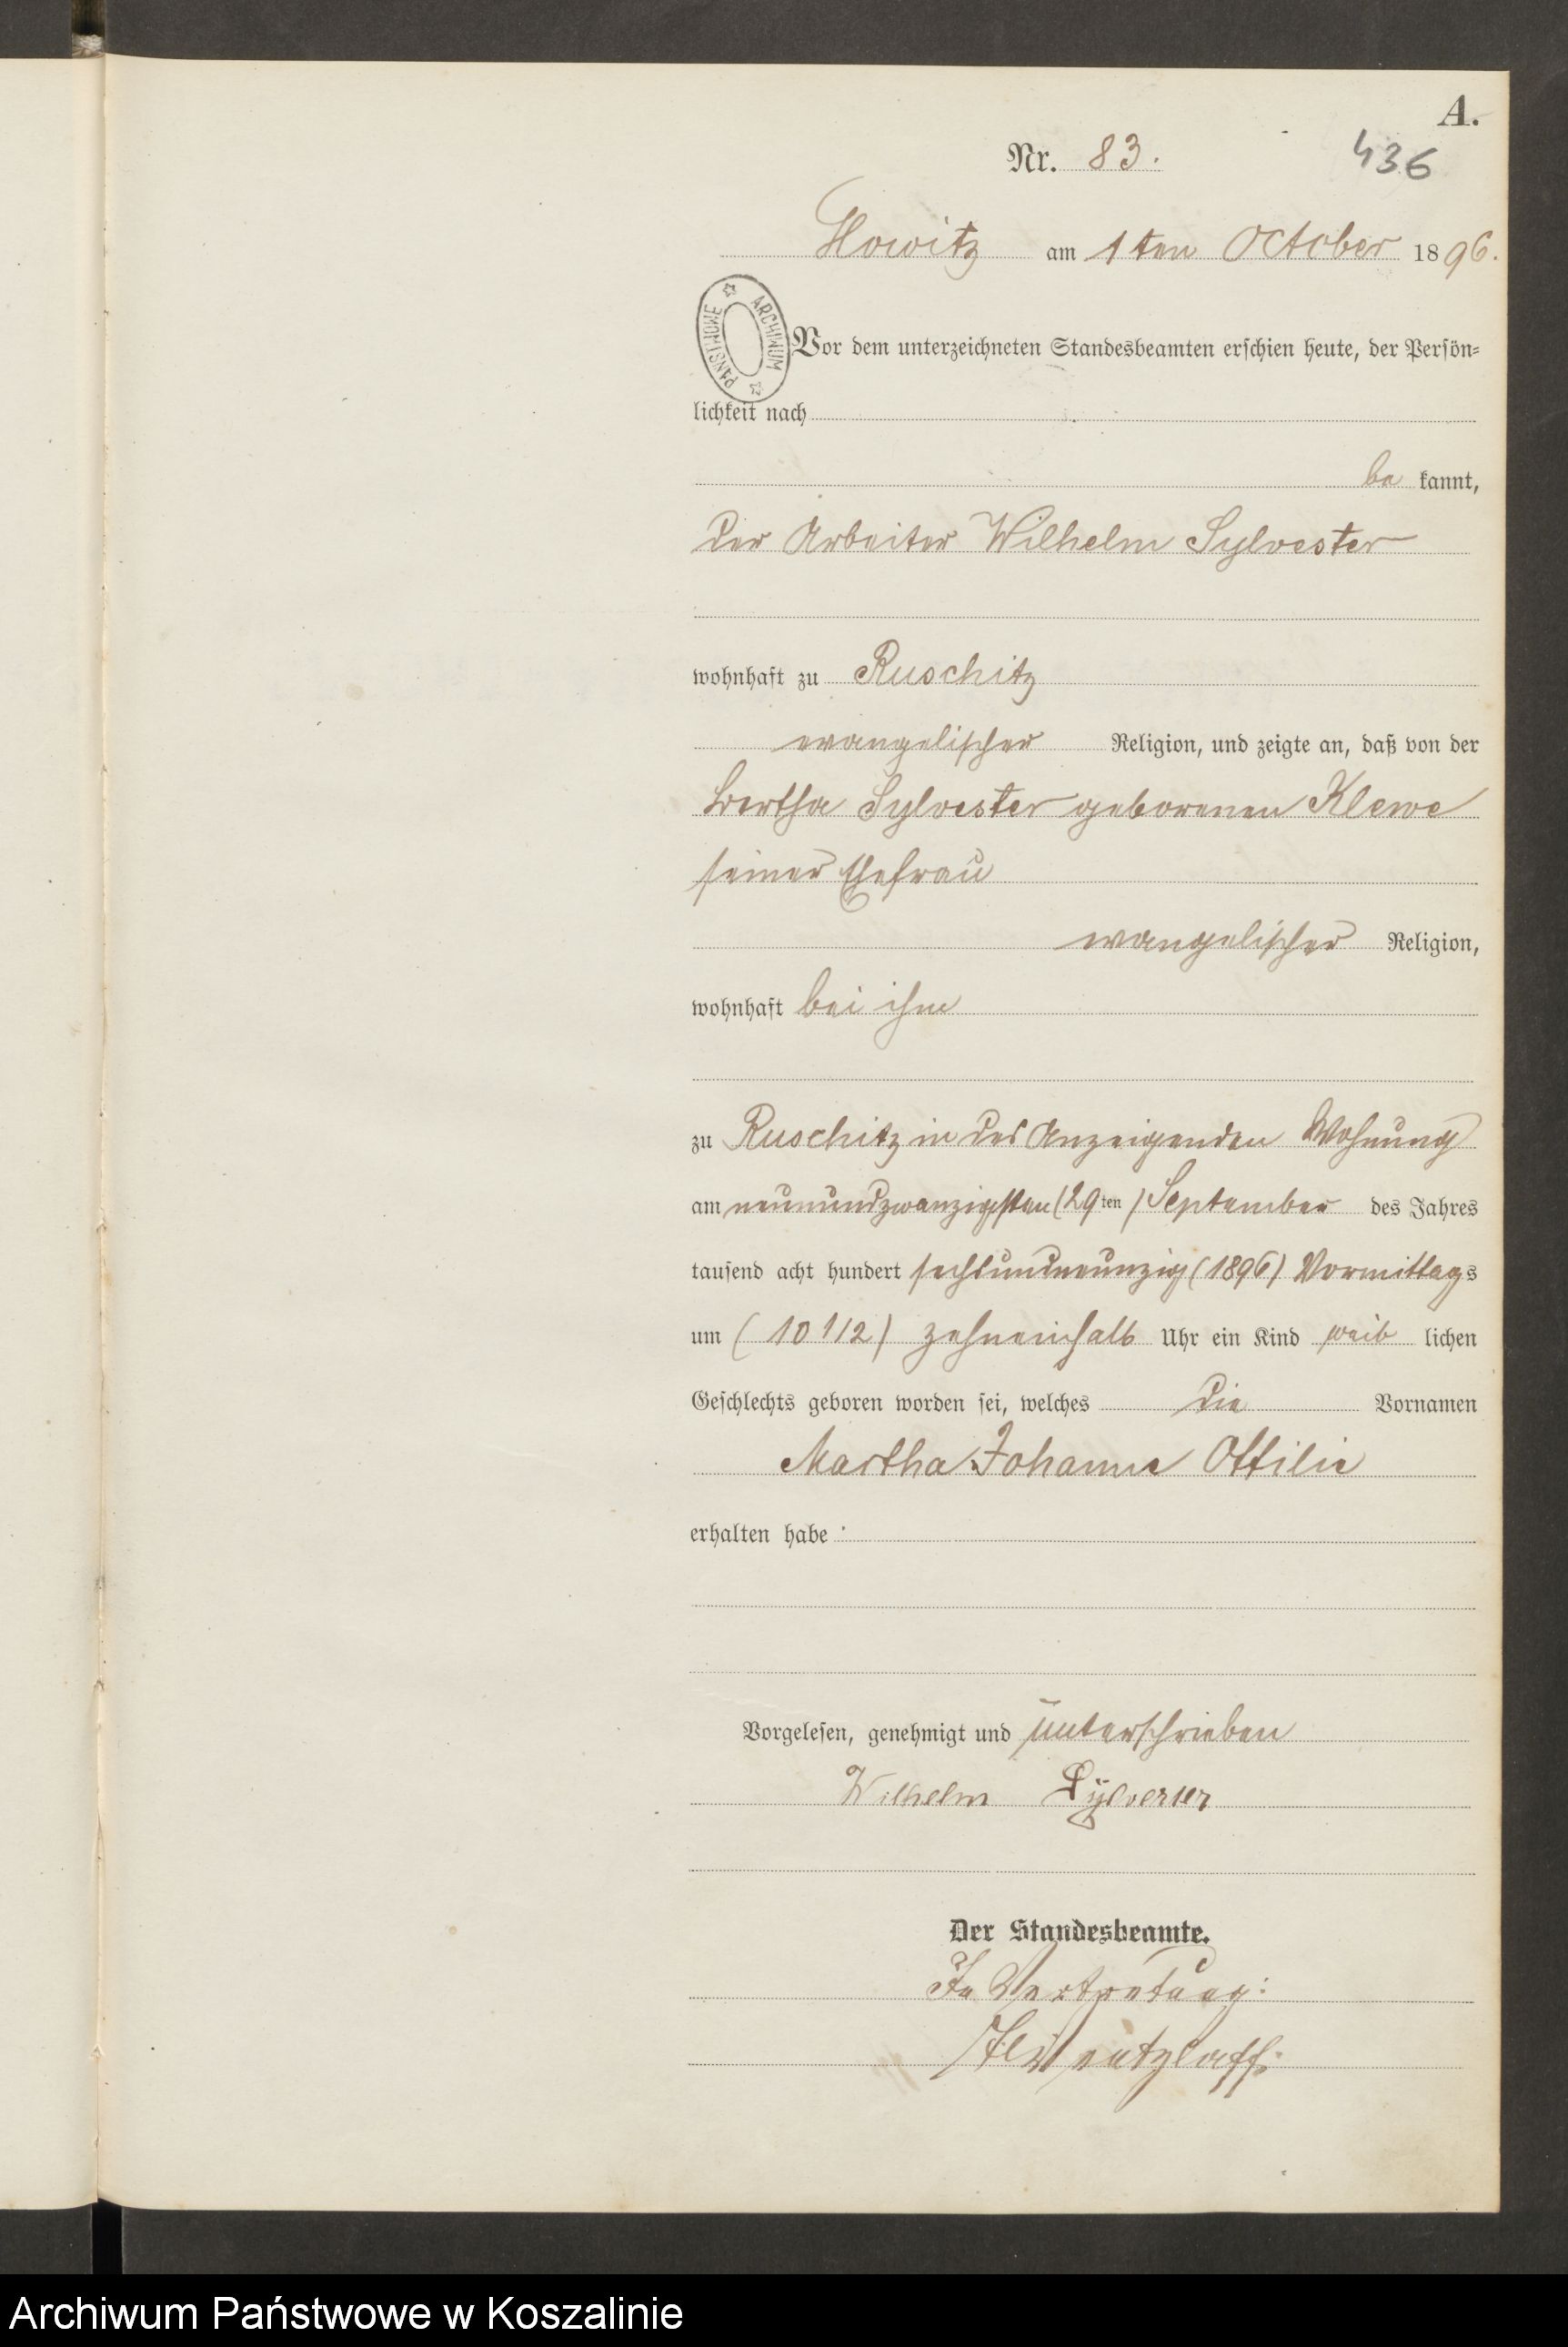 A.
Nr. 83.
436
Howitz am 1ten October 1896.
ARCHIWUM PAŃSTWOWE
Vor dem unterzeichneten Standesbeamten erschien heute, der Persön=
lichkeit nach
be kannt,
der Arbeiter Wilhelm Sylvester
wohnhaft zu Ruschitz
evangelischer Religion, und zeigte an, daß von der
Bertha Sylvester geborenen Klewe
seiner Ehefrau
evangelischer Religion,
wohnhaft bei ihm
zu Ruschitz in des Anzeigenden Wohnung
am neunundzwanzigsten (29ten) September des Jahres
tausend acht hundert sechsundneunzig (1896) Vormittags
um (10 1/2) zehneinhalb Uhr ein Kind weib lichen
Geschlechts geboren worden sei, welches die Vornamen
Martha Johanne Ottilie
erhalten habe
Vorgelesen, genehmigt und unterschrieben
Wilhelm Sylvester
Der Standesbeamte.
In Vertretung:
Archiwum Państwowe w Koszalinie